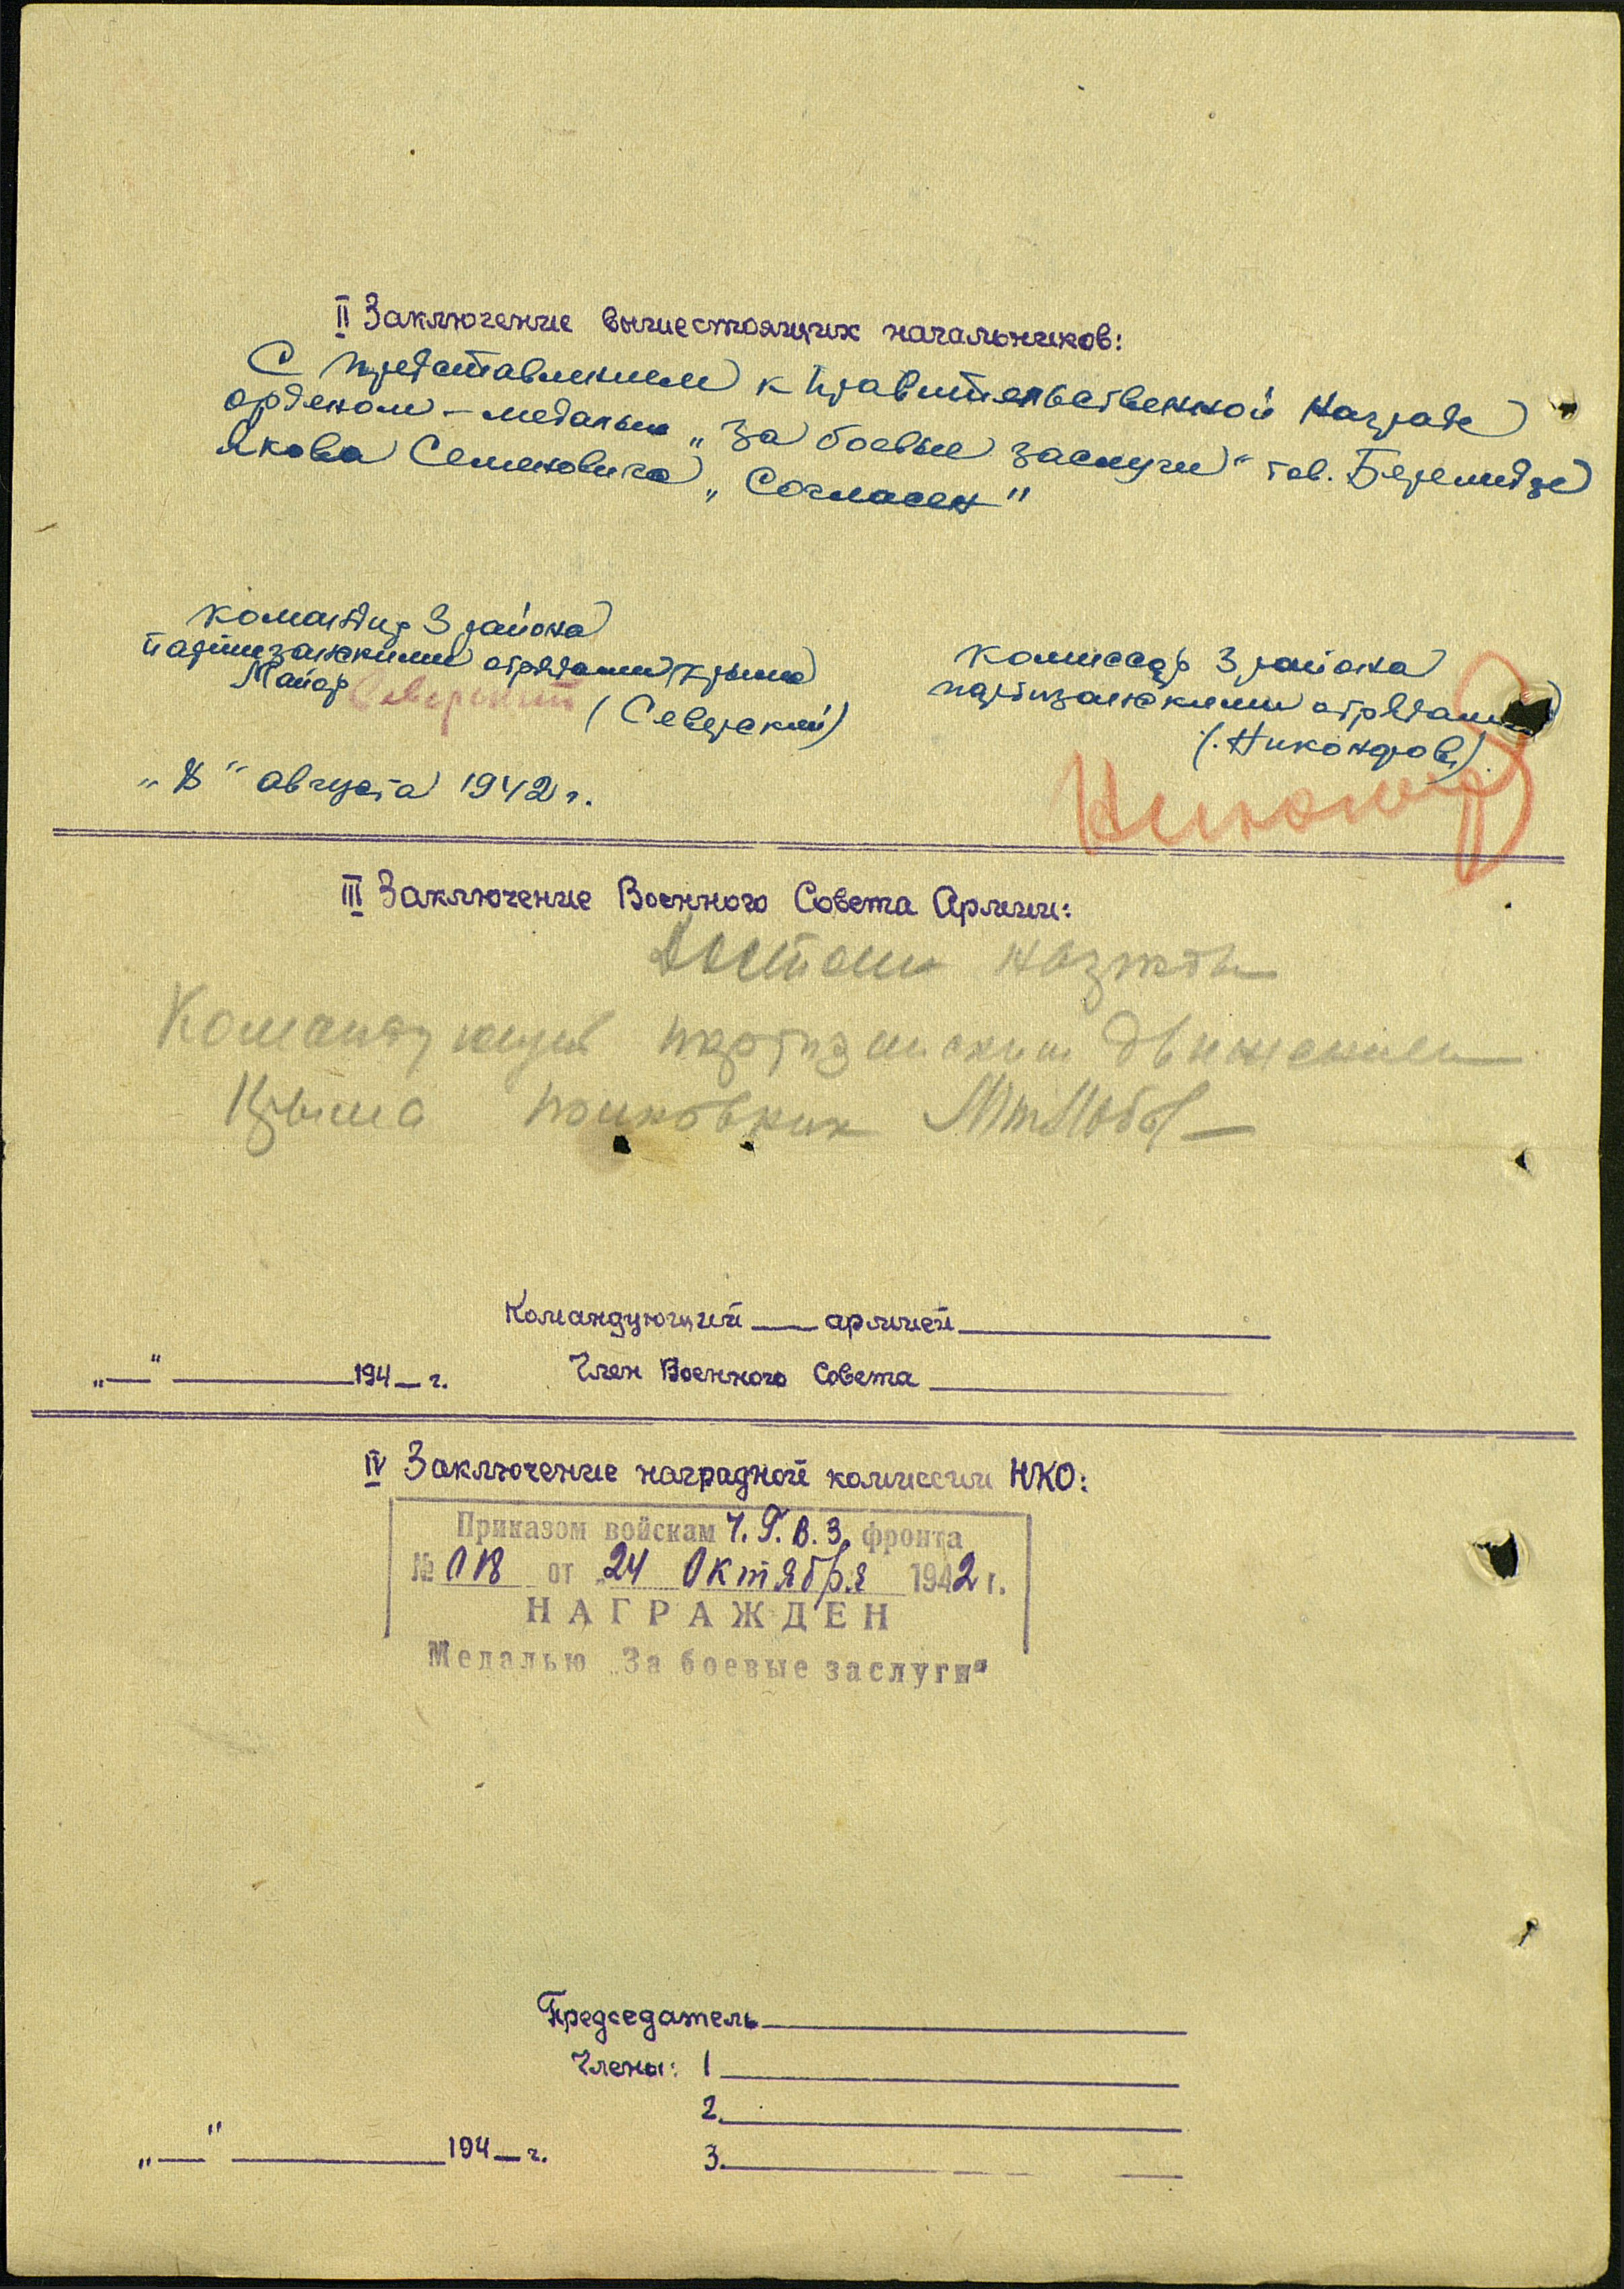 II Заключение вышестоящих начальников:
С представлением к правительственной награде
орденом – медалью „За боевые заслуги" тов. Беремидзе
Якова Семеновича „Согласен"
Командир 3 района
партизанскими отрядами Крыма
Майор Северский (Северский)
„8" августа 1942 г.
Комиссар 3 района
партизанскими отрядами
(Никоноров)
Никоноров
III Заключение Военного Совета Армии:
Достоин награды
Командующий партизанским движением
Крыма полковник
Командующий ___ армией
Член Военного Совета
„__" ______ 194_ г.
IV Заключение наградной комиссии НКО:
Приказом войскам Ч.Г.В.З. фронта
№ от „24 Октября 1942 г.
НАГРАЖДЕН
Медалью „За боевые заслуги"
Председатель
Члены: 1
2.
3.
„__" ______ 194_ г.